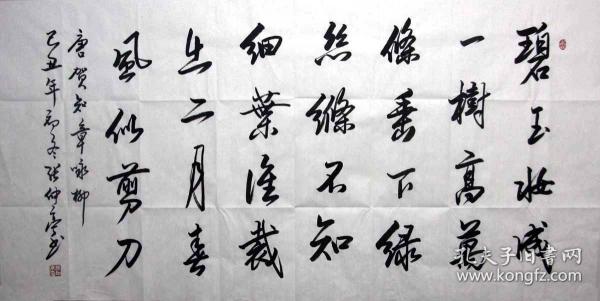 碧玉妝成
一樹高萬
條垂下綠
絲縧不知
細葉誰裁
出二月春
風似剪刀
唐賀知章咏柳
己丑年初冬張仲亭书
孔夫子旧书网
www.kongfz.com